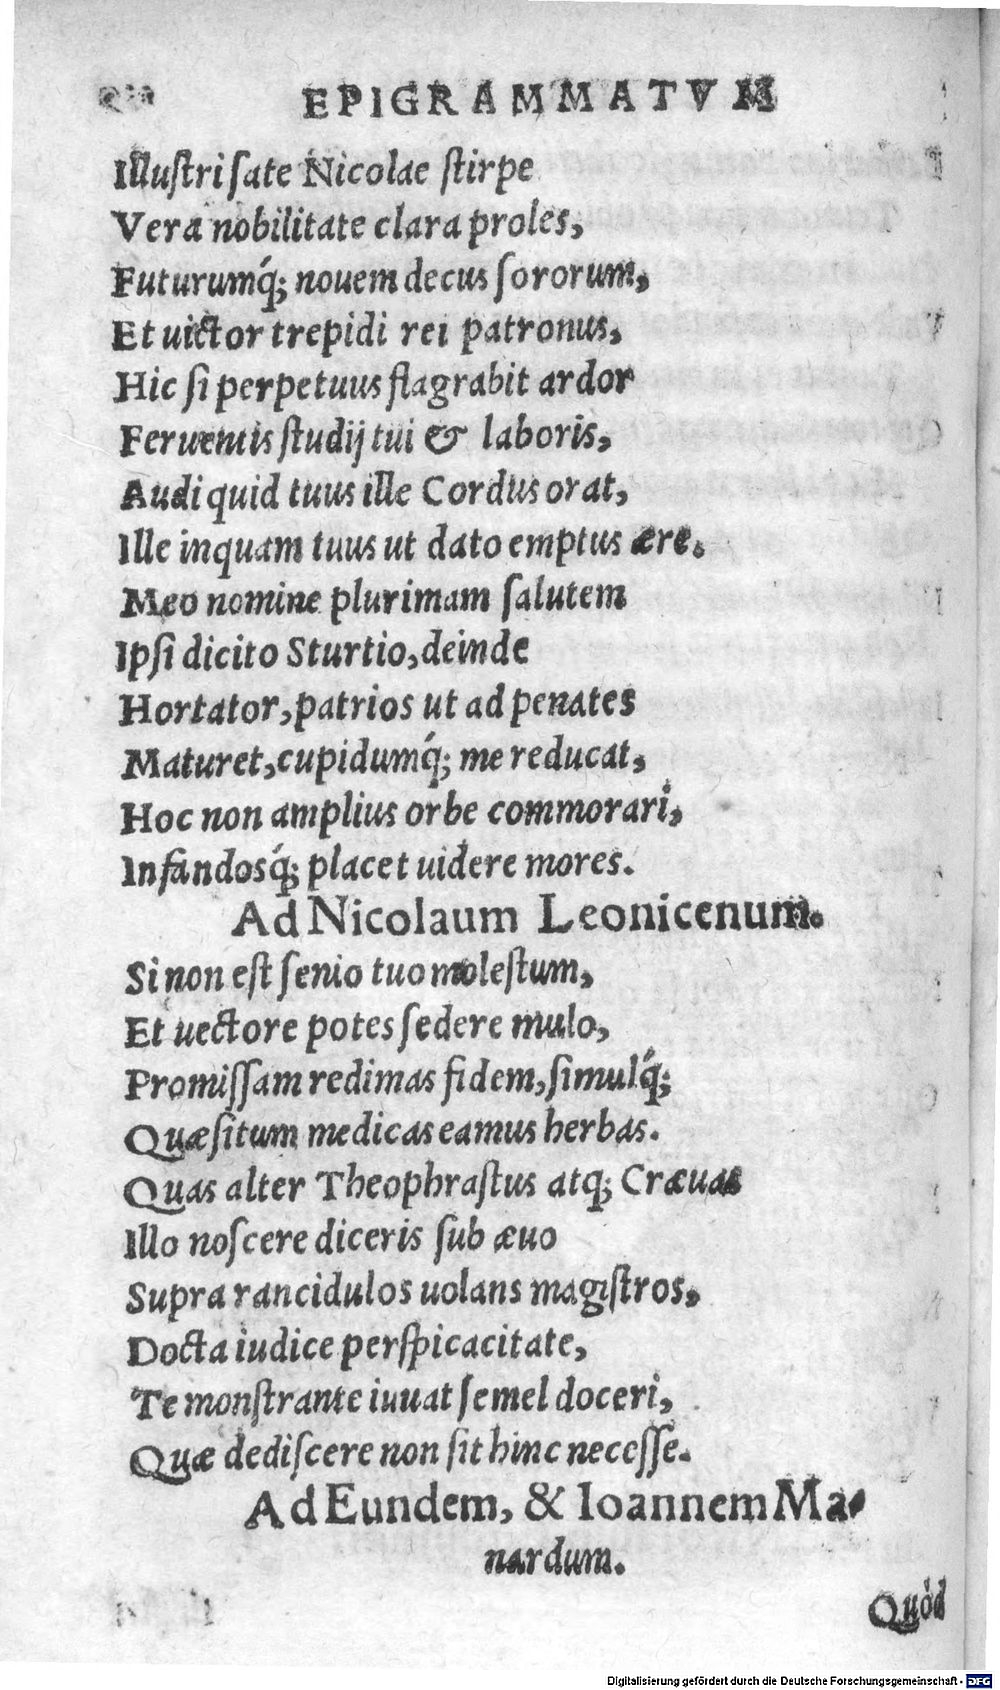 EPIGRAMMATVM
Illuſtri ſate Nicolae ſtirpe
Vera nobilitate clara proles,
Futurumq́; nouem decus ſororum,
Et uictor trepidi rei patronus,
Hic ſi perpetuus flagrabit ardor
Feruentis ſtudij tui & laboris,
Audi quid tuus ille Cordus orat,
Ille inquam tuus ut dato emptus ære.
Meo nomine plurimam ſalutem
Ipſi dicito Sturtio, deinde
Hortator, patrios ut ad penates
Maturet, cupidumq́; me reducat,
Hoc non amplius orbe commorari,
Infandosq́; placet uidere mores.
Ad Nicolaum Leonicenum.
Si non eſt ſenio tuo moleſtum,
Et uectore potes ſedere mulo,
Promiſſam redimas fidem, ſimulq́;
Quæſitum medicas eamus herbas.
Quas alter Theophraſtus atq; Cræuas
Illo noſcere diceris ſub æuo
Supra rancidulos uolans magiſtros,
Docta iudice perſpicacitate,
Te monſtrante iuuat ſemel doceri,
Quæ dediſcere non ſit hinc neceſſe.
Ad Eundem, & Ioannem Ma-
nardum.
Quòd
Digitalisierung gefördert durch die Deutsche Forschungsgemeinschaft - DFG